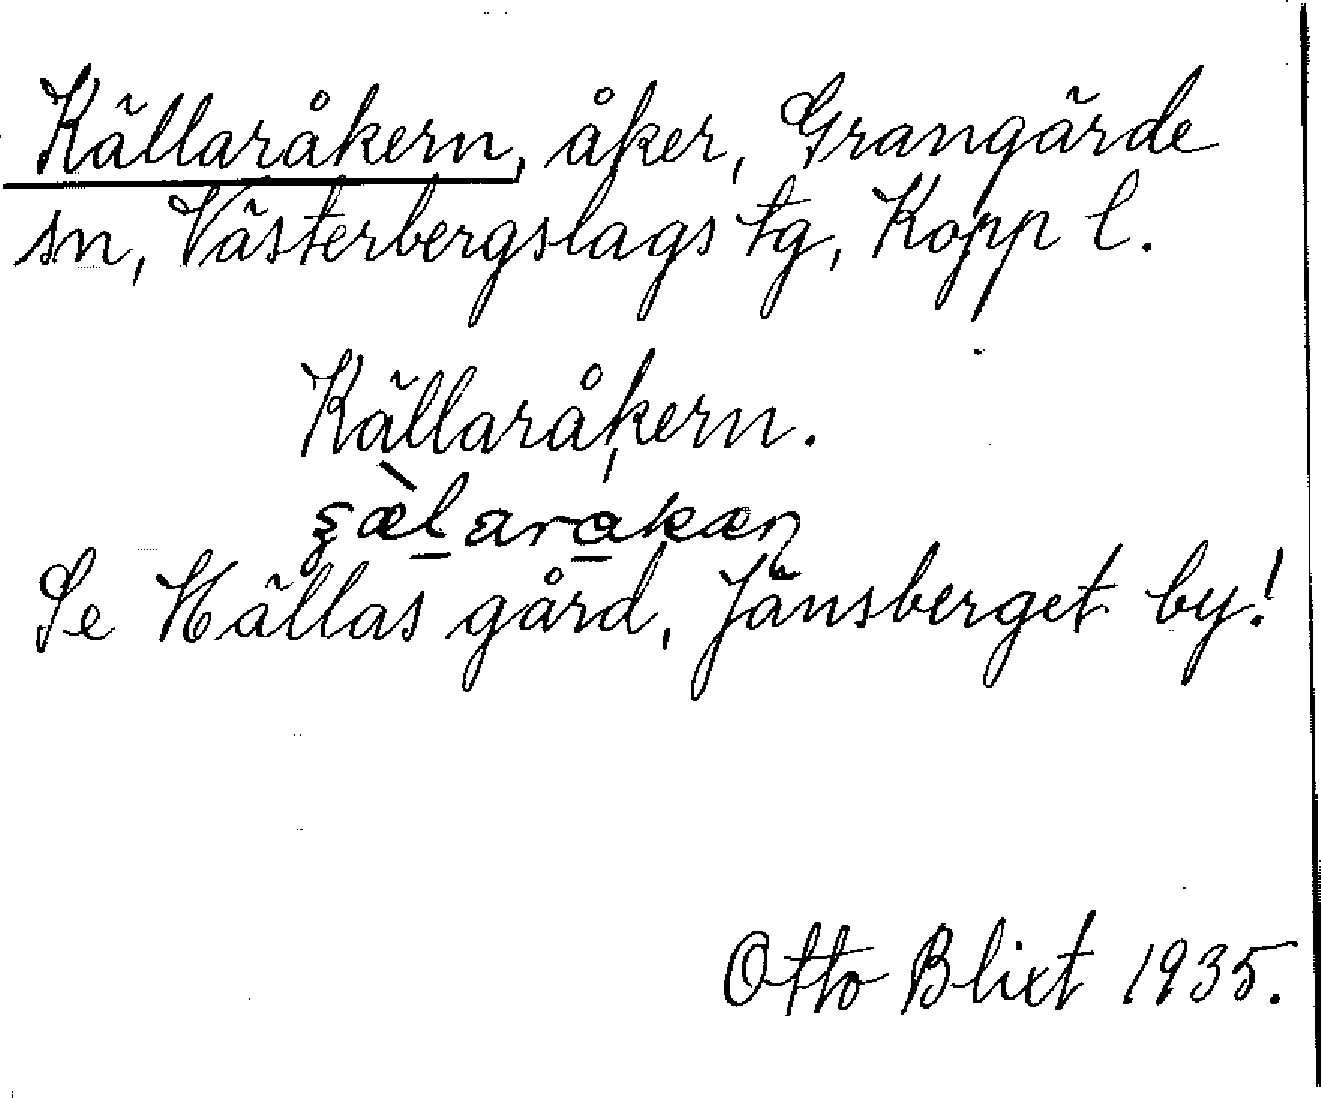 Källaråkern, åker, Grangärde
sn, Västerbergslags tg, Kopp l.
Källaråkern.
Se Hällas gård, Jänsberget by!
Otto Blixt 1935.